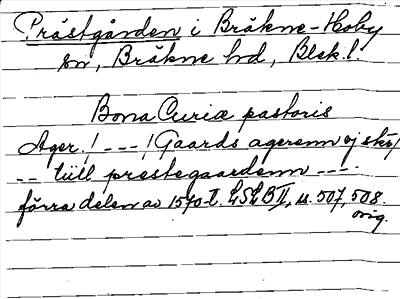 Prästgården i Bräkne-Hoby
sn, Bräkne hd, Blek.l.
Bona Curiæ pastoris
Ager. / --- / Gaards agerenn ej
-- tiill prestegaardenn ---
förra delen av 1570-t. LSLB II, s. 507, 508.
orig.